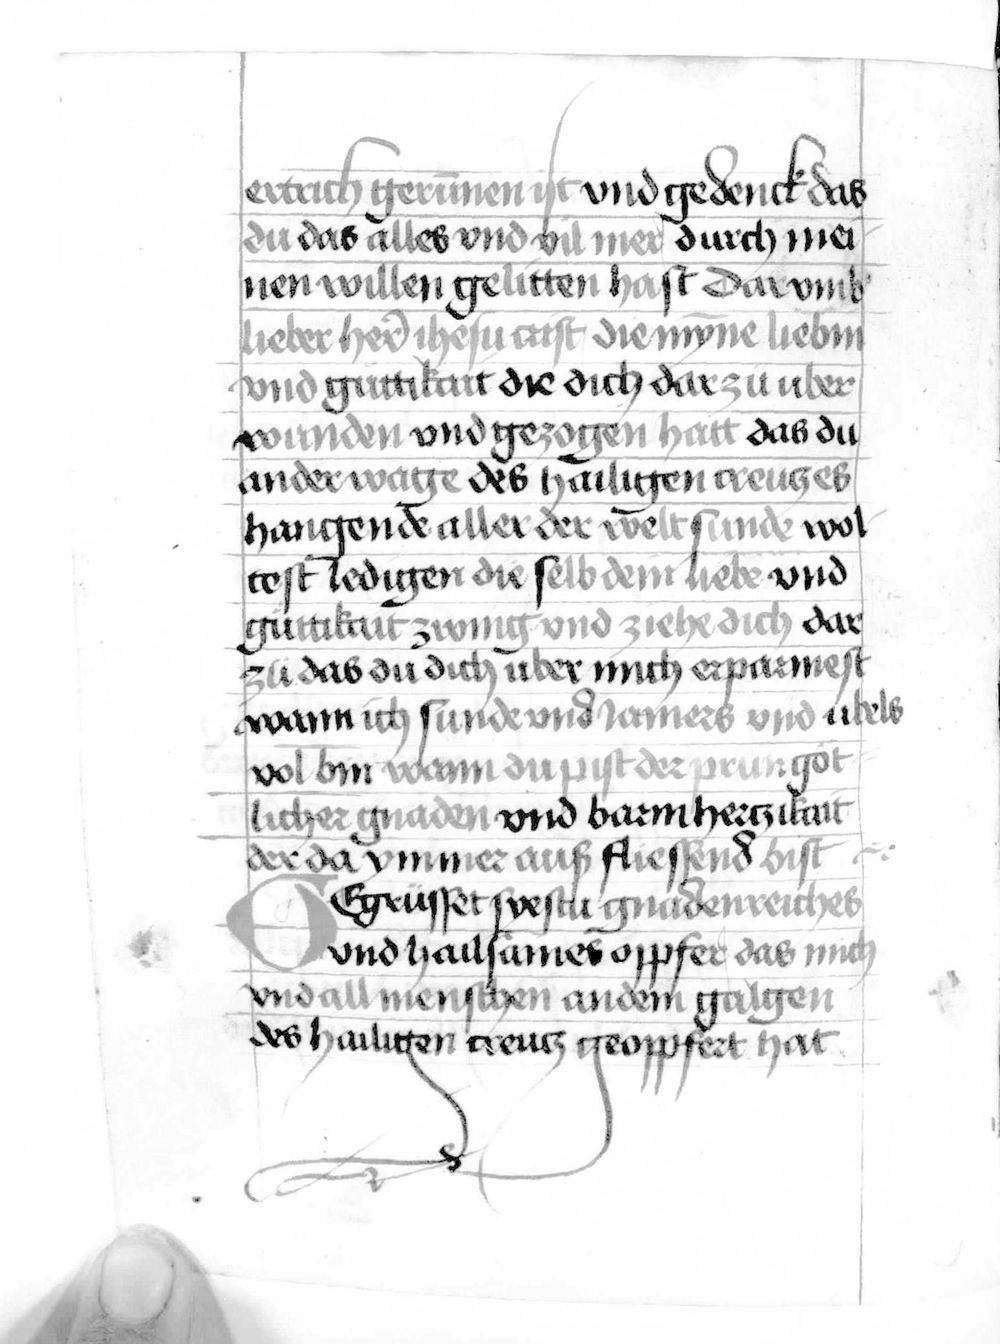 ertrich gerūnen ist vnd gedenck das
du das alles vnd vil mer durch mei
nen willen gelitten hast Dar vmb
lieber her ihesu crist die mȳne liebin
vnd güttikait die dich dar zü uber
wunden vnd gezogen hatt das du
an der wage des hailigen creuczes
hangende aller der welt sunde wol
test ledigen die selb dein liebe vnd
güttikait zwing vnd ziehe dich dar
zü das du dich uber mich erparmest
wann ich sunde vnd Iamers vnd ubels
vol bin wann du pist der prun göt
licher gnaden vnd barmherczikait
der da ymmer auß fliessend bist
Gegrüsset syestu gnadenreiches
vnd hailsames oppfer das mich
vnd all menschen an dem galgen
des hailigen creucz geoppfert hat